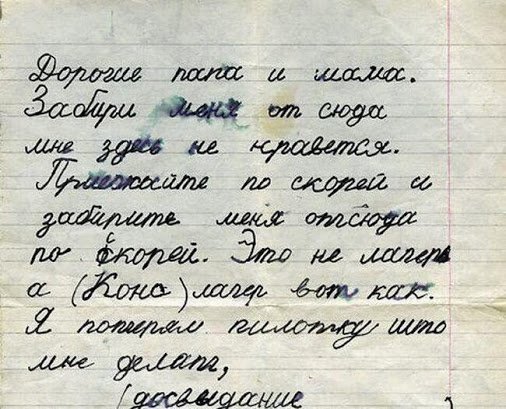 Дорогие папа и мама.
Забири меня от сюда
мне здесь не нравется.
Приезжайте по скорей и
забирите меня отсюда
по скорей. Это не лагерь
а (Конс) лагер вот как.
Я потерял пилотку што
мне делать,
(досвидание